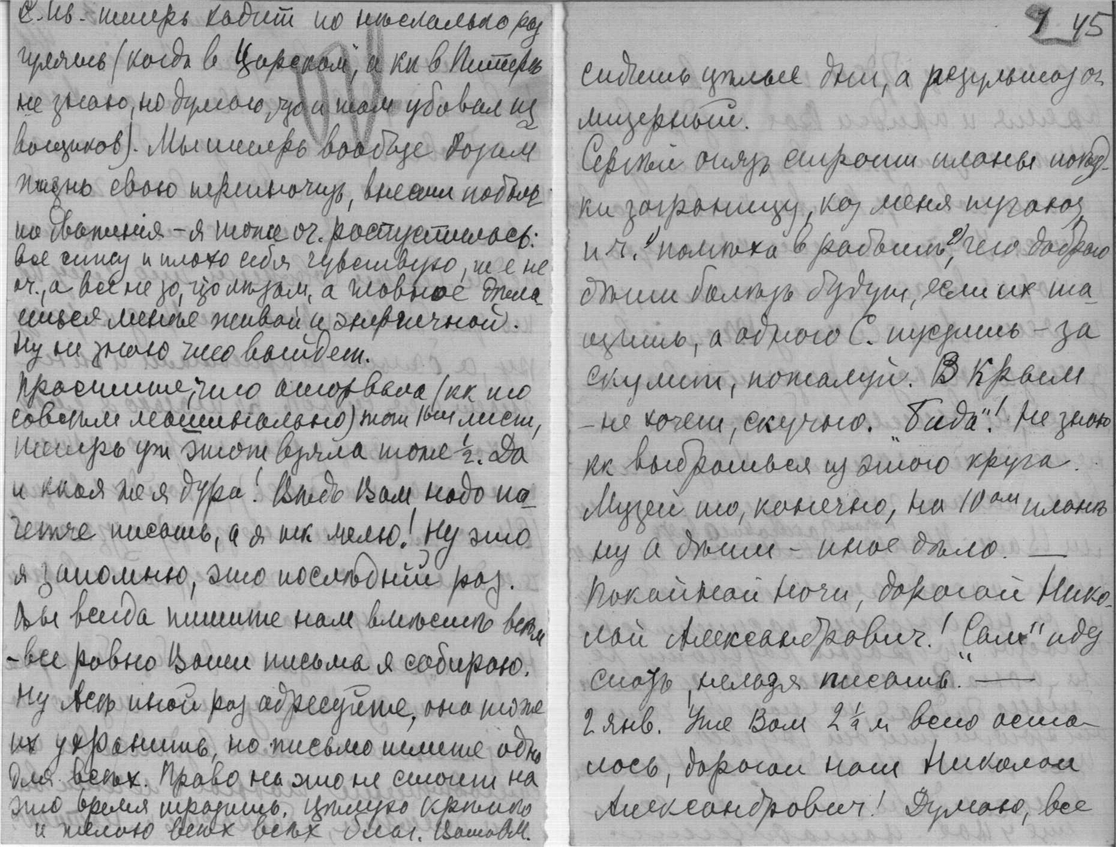 С. Ив. теперь ходит по несколько раз
гулять (когда в Царском, а кк в Питере
не знаю, но думаю, что и там убавил из
вощиков). Мы теперь вообще хотим
жизнь свою переиначить, внести поболь
ше движенія – я тоже оч. распустилась:
все сижу и плохо себя чувствую, т. е. не
оч., а все не то, что летом, а главное дела
ешься менее живой и энергичной.
Ну не знаю что выйдет.
Простите, что оторвала (кк то
совсем машинально) тот 1ый лист,
теперь уж этот взяла тоже ½. Да
и ккая же я дура! Ведь Вам надо на
четче писать, а я кк мелю! Ну это
я запомню, это последній раз.
Вы всегда пишите нам вместе всем
– все равно Ваши письма я собираю.
Ну Асе иной раз адресуйте, она тоже
их хранит, но письмо пишите одно
для всех. Право, на это не стоит на
это время тратить. Целую крепко
и желаю всех всех благ. Ваша М.
1 45
сидишь целые дни, а результат
мизерный.
Сергей опять строит планы поезд-
ки заграницу, кот меня пугают,
и ч. 1) помеха в работе, 2) что
дети болеть будут, если их та
щить, а одного С. пустишь – за
скулит, пожалуй. В Крым
– не хочет, скучно. "Бида"! Не знаю
кк выбраться из этого круга.
Музей то, конечно, на 10ом плане
ну а дети – иное дело. —
Покойной ночи, дорогой Нико-
лай Александрович! "Сам" иду
спать, нельзя писать. —
2 янв. Уже Вам 2½ м всего оста-
лось, дорогой наш Николай
Александрович! Думаю, все